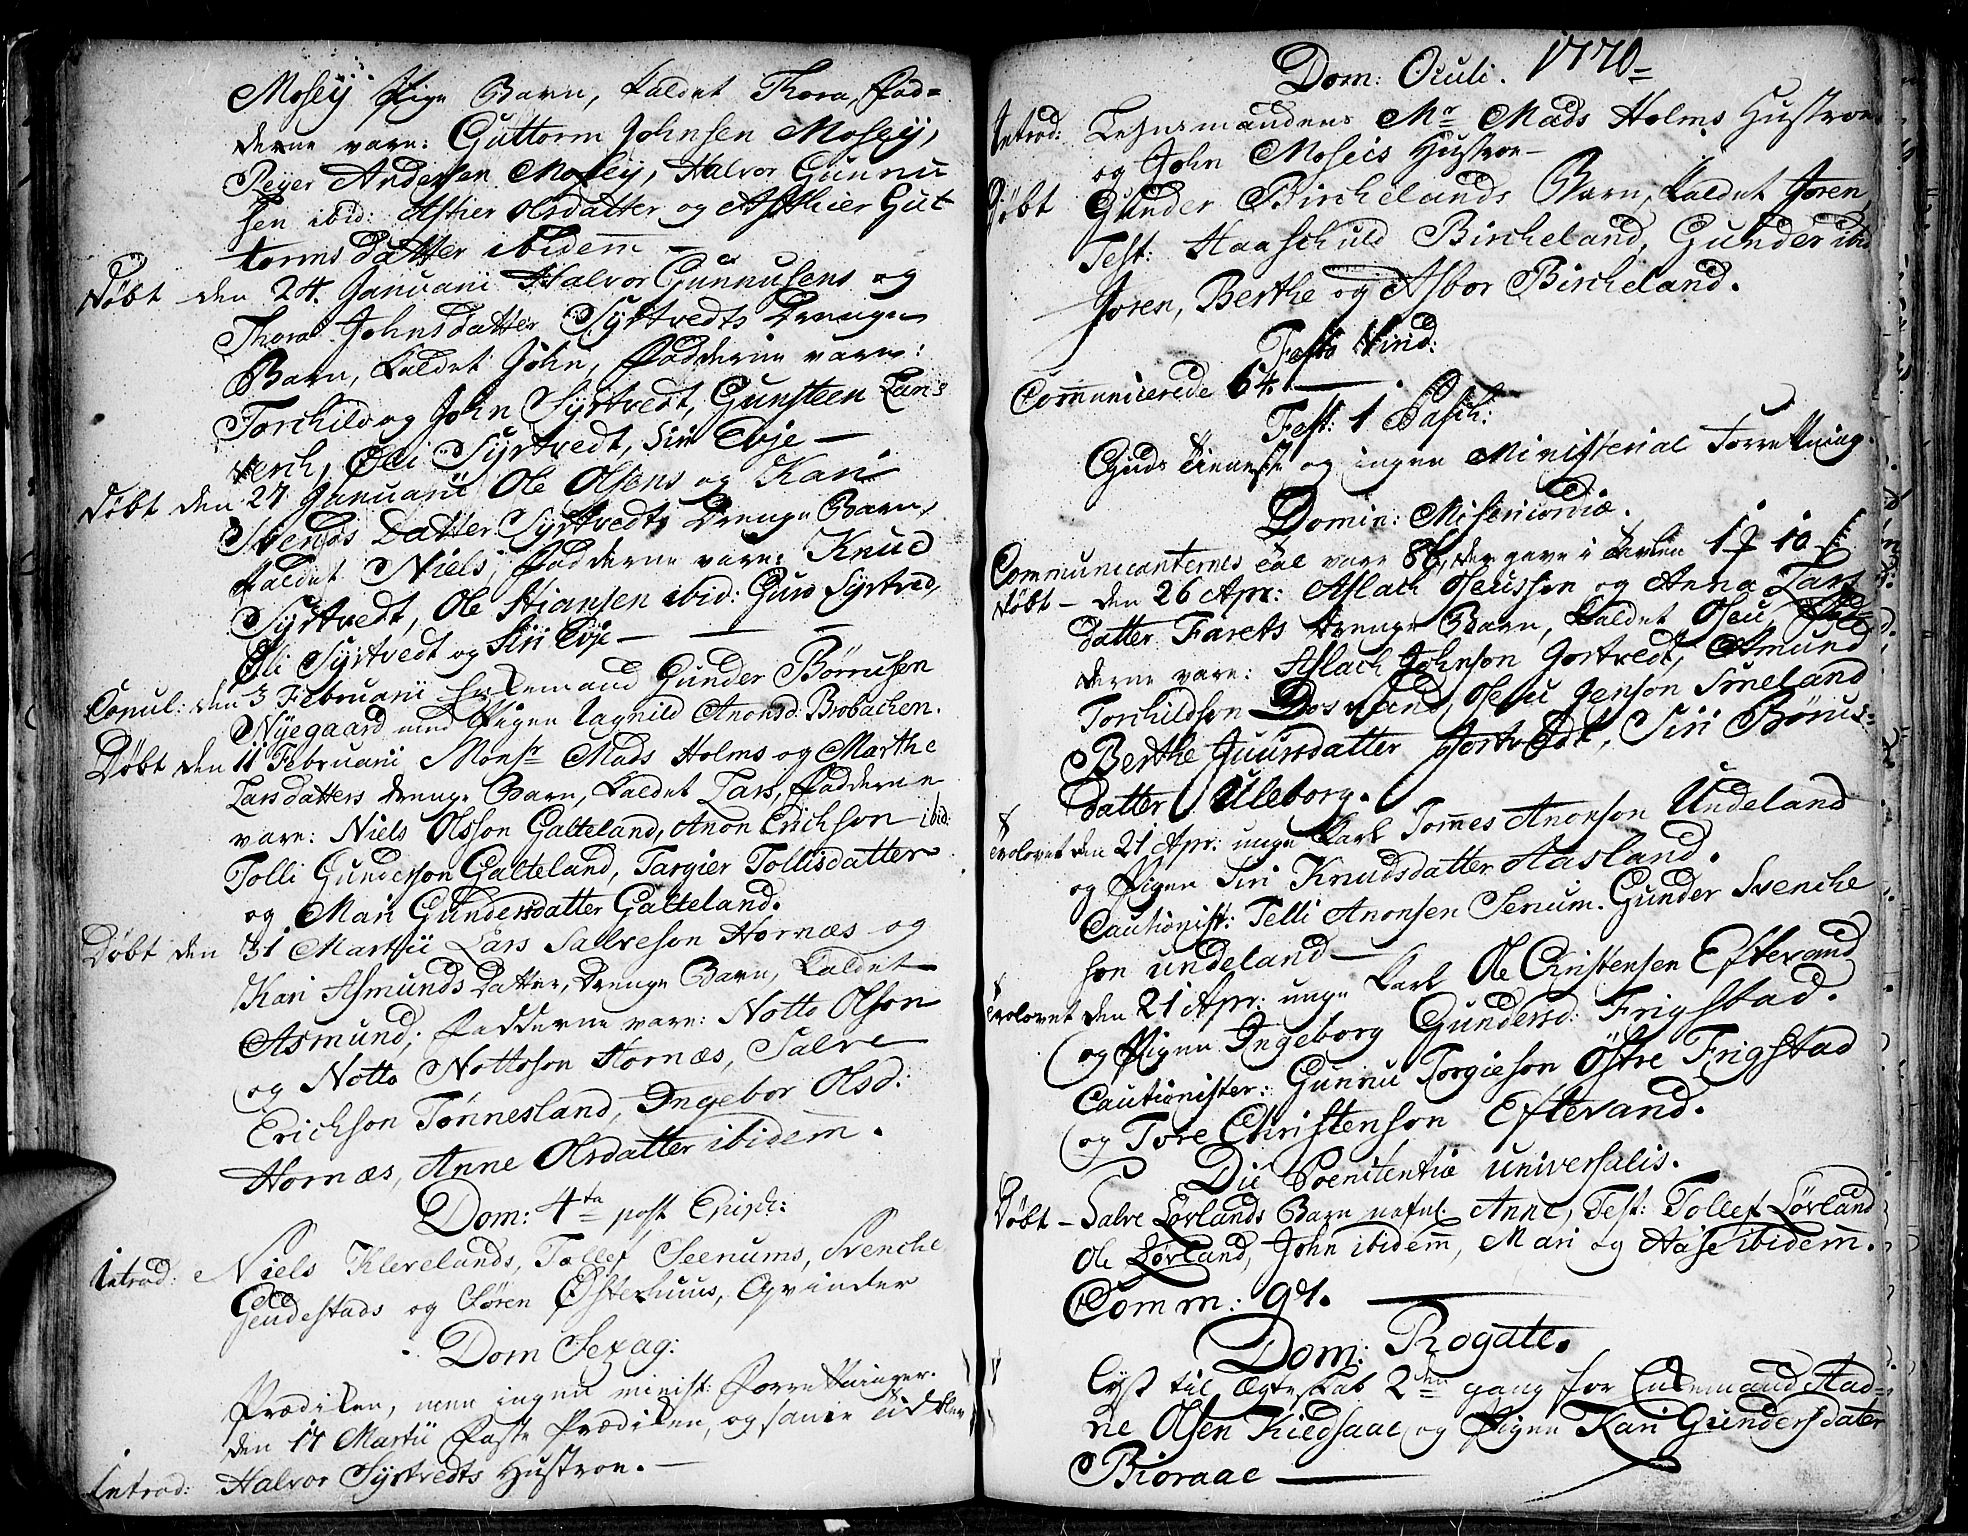 Mosey Pige Barn, kaldet Thora, Fad=
derne vare: Guttorm Johnsen Mosey,
Reyer Andersen Mosey, Halvor Gunnu
sen ibid: Asthier Olsdatter og Asthier Gut
torms datter ibidem̄ —
Døbt den 24. Januarii Halvor Gunnusens og
Thora Johnsdatter Syrtvedts Drenge
Barn, kaldet John, Fadderne vare:
Torchild og John Syrtvedt, Gunsteen Lars
verch, Oli Syrtvedt, Siri Evje —
Døbt den 27 Januarii Ole Olsens og Kari
Svends Datter Syrtvedts Drenge Barn,
kaldet Niels, Fadderne vare: Knud
Syrtvedt, Ole Stiansen ibid: Guro Syrtved,
Oli Syrtvedt og Siri Evje — — —
Copul: den 3 Februarii Enkemand Gunder Børrusen
Nyegaard med Pigen Jagnild Anonsd. Brobachen.
Døbt den 11 Februarii Monsr Mads Holms og Marthe
Larsdatters Drenge Barn, kaldet Lars, Fadderne
vare: Niels Olsson Galteland, Anon Erichson ibid:
Tolli Gunderson Galteland, Targier Tollisdatter
og Mari Gundersdatter Galteland.
Døbt den 31 Martii Lars Salveson Hornæs og
Kari Asmunds Datter, Drenge Barn, kaldet
Asmund; Fadderne vare: Notto Olson
og Notto Nottoson Hornæs, Salve
Erichson Tønnesland, Ingebor Olsd:
Hornæs, Anne Olsdatter ibidem.
Dom: 4ta post Epiph:
Introd: Niels Klevelands, Tollef Seenums, Svenche
Geudestads og Søren Østerhuus, Qvinder
Dom Sexag:
Prædiken, men ingen minist: Forretninger.
den 17 Martii Faste Prædiken, og samme
Introd: Halvor Syrtvedts Hustroe. —
Dom: Oculi. 1770=
Introd: Lehnsmandens Mr Mads Holms Hustroe
og John Moseis Hustroe —
Døbt Gunder Bircheland's Barn, kaldet Joren,
Test: Haaschuld Bircheland, Gunder ibid
Joren, Berthe og Asbor Bircheland.
Festo Virid:
Communicerede 64. —
Fest: 1 Pasch:
Guds tieneste og ingen Ministerial Forretning.
Domin: Misericordiæ.
Communicanternes tal vare 86, der gave i Tavlen 1 10
Døbt — den 26 Apr: Aslach Oeusson og Anna Lars
datter Farets Drenge Barn, kaldet Oeu, Fad=
derne vare: Aslach Johnson Jortvedt, Amund
Torchildson Dosvland, Oeu Jenson Smeland
Berthe Juursdatter Jortvedt, Siri Børus=
datter Uleborg.
Trolovet den 21 Apr: unge Karl Tommes Anonson Undeland
og Pigen Siri Knudsdatter Aasland.
Cautionist: Telli Anonsen Senum. Gunder Svenche
son Undeland —
Trolovet den 21 Apr: unge Karl Ole Christensen Eftevand
og Pigen Ingeborg Gundersd: Frigstad.
Cautionister: Gunnu Torgieson Østre Frigstad
og Tore Christenson Eftevand.
Die Poenitentiæ universalis.
Døbt — Salve Lørlands Barn nafnl: Anne, Test: Tollef Lørland
Ole Lørland, John ibidem̄, Mari og Aase ibidem̄.
Comm: 94. —
Dom: Rogate.
Lyst til Ægteskab 2den gang for Enkemand Aad=
ne Olsen Kiedsaae og Pigen Kari Gundersdater
Bioraae —